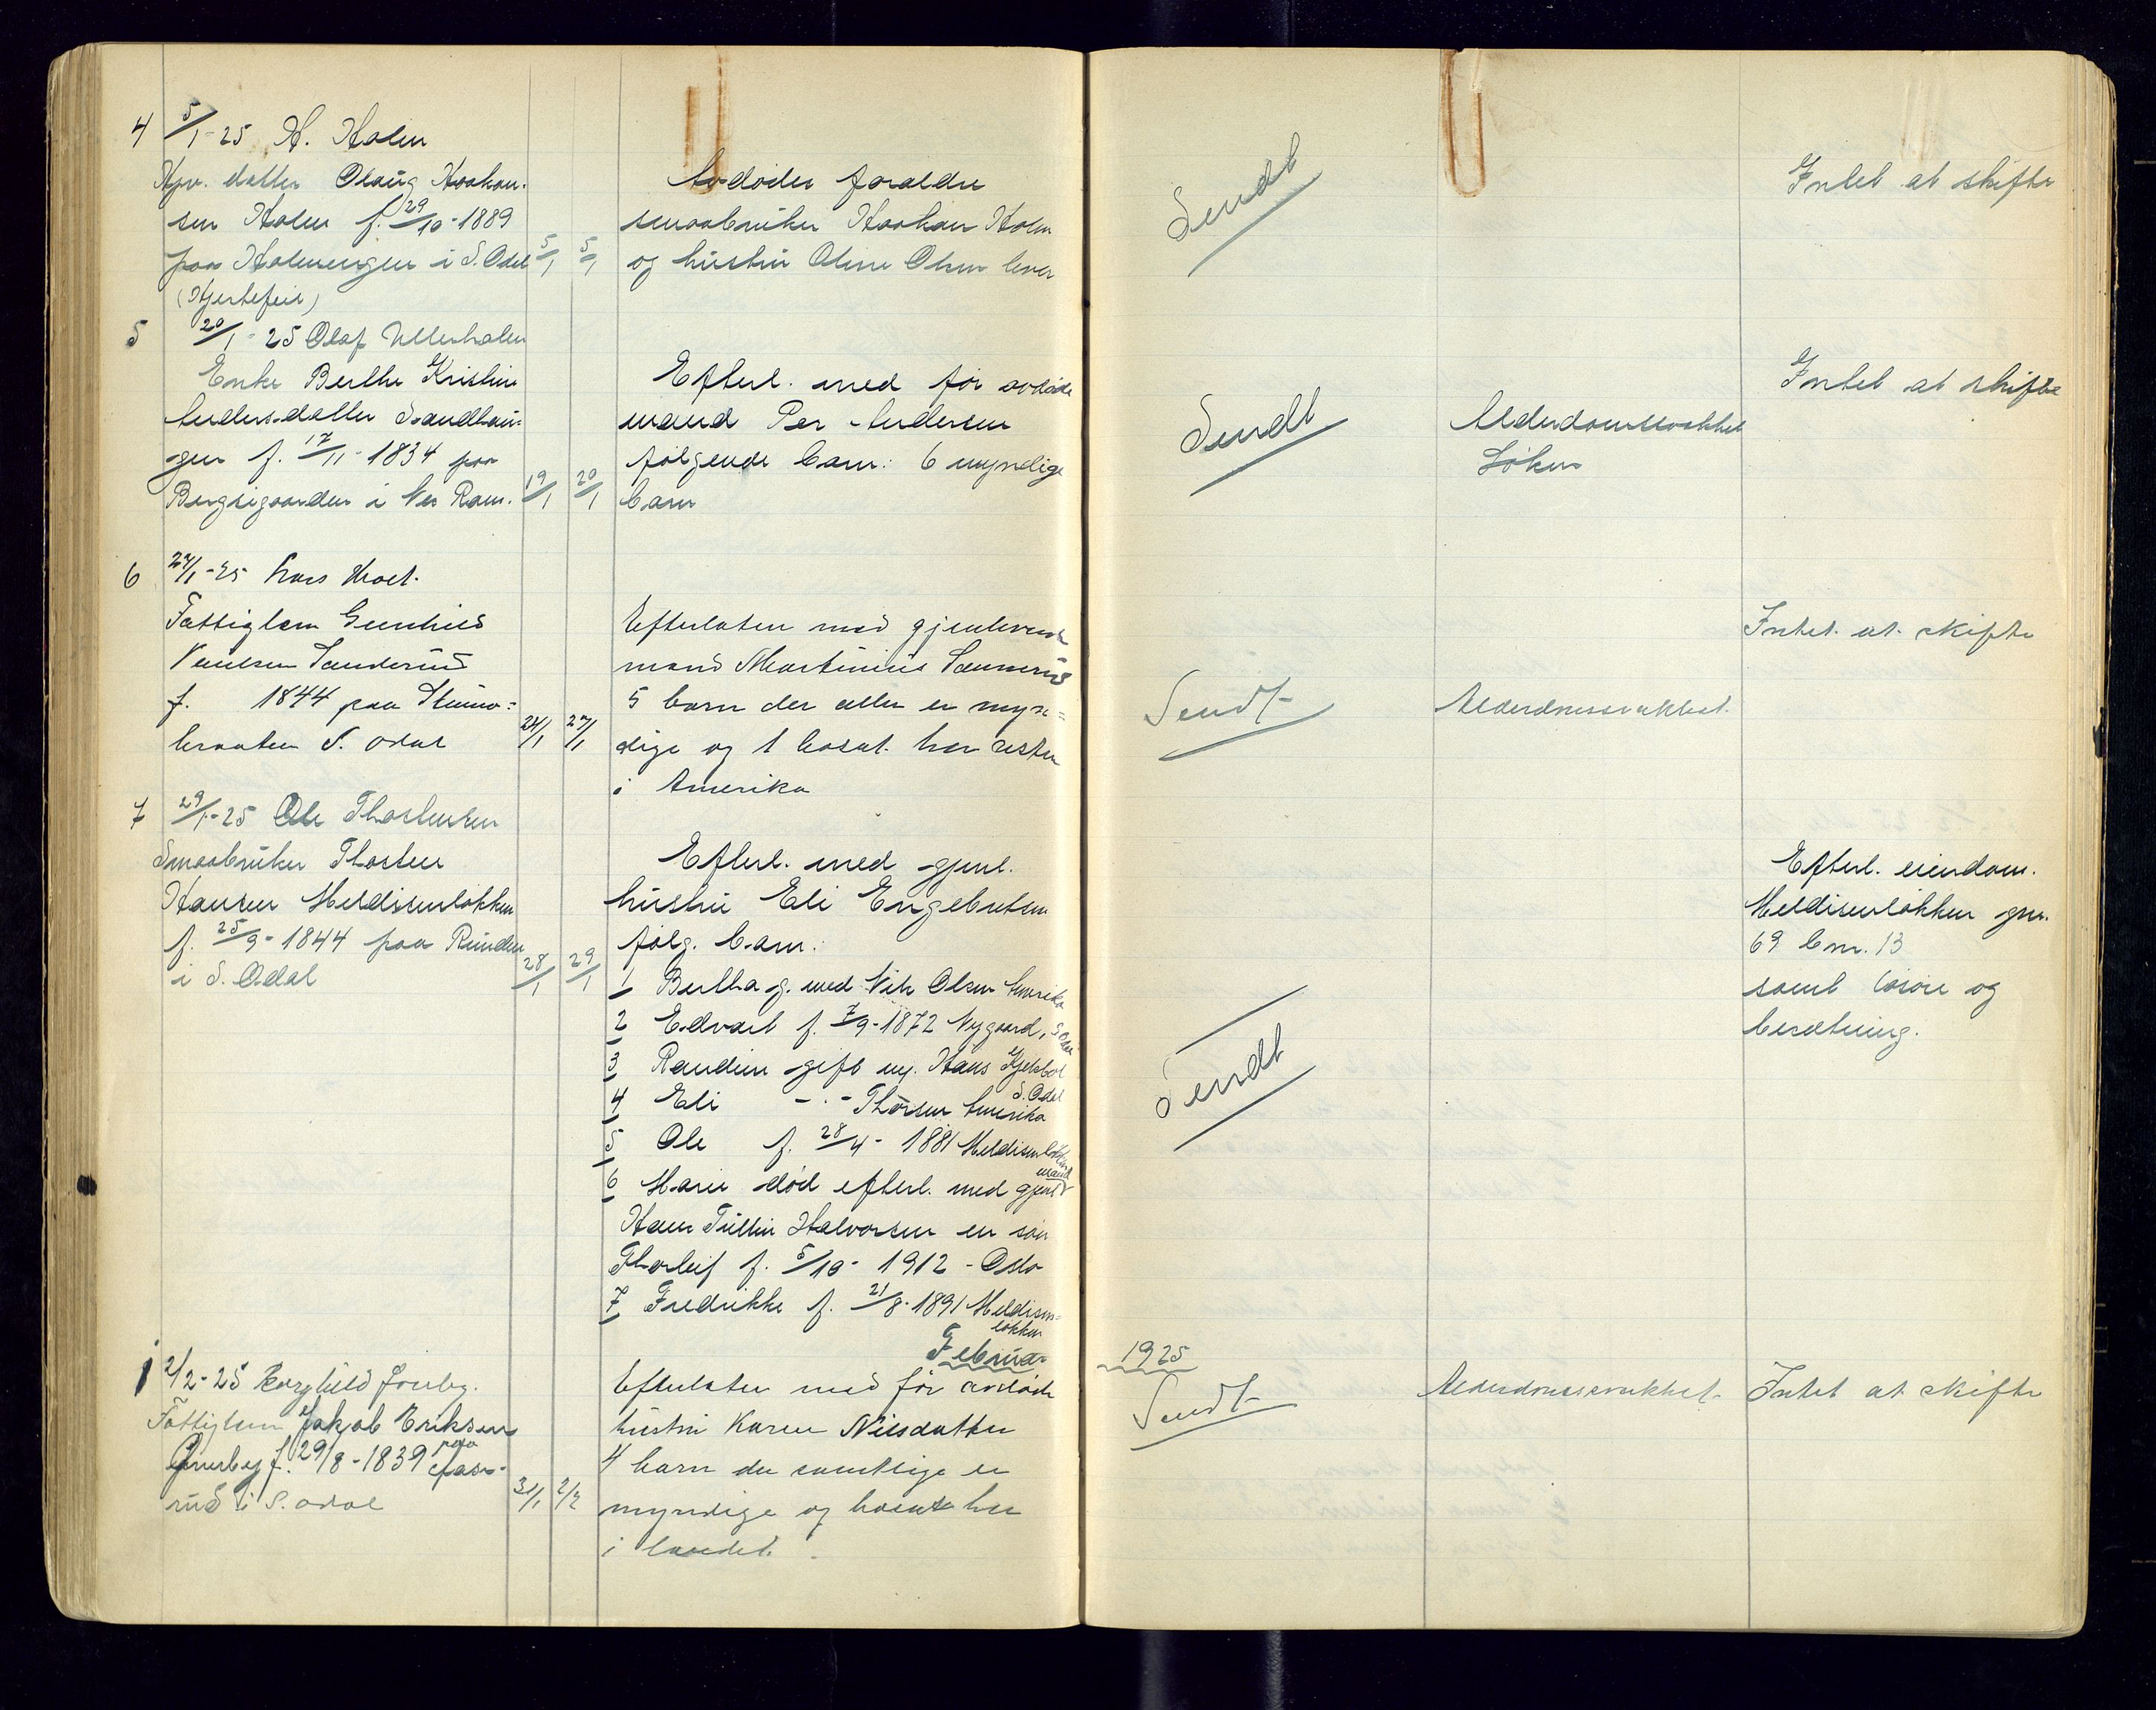 4 5/1-25 H. Holm
Hjv. datter Olaug Haakan-
sen Holm f. 29/10-1889
paa Holmengen i S. Odal 5/1 5/1
(Hjertefeil)
Avdødes foraldre
smaabruker Haakan Holm
og hustru Oline Olsen lever
Sendt
Intet at skifte
5 20/1-25 Olaf Ullerhalen
Enke Berthe Kristine
Andersdatter Sandhau-
gen f. 17/11-1834 paa
Bergsigaarden i Nes Rom. 19/1 20/1
Efterl. med før avdøde
mand Per Andersen
følgende barn: 6 myndige
barn
Sendt
Alderdomssvakhet
Intet at skifte
6 27/1-25 Lars
Fattiglem Gunhild
Paulsen Sanderud
f. 1844 paa
braaten S. Odal 24/1 27/1
Efterlater med gjenlevende
mand Martinius Sannerud
5 barn der alle er myn=
dige og 1 bosat her resten
i Amerika
Sendt
Alderdomssvakhet.
Intet at skifte
7 29/1-25 Ole Thorstensen
Smaabruker Thosten
Hansen Meldisenløkken
f. 25/9-1844 paa Runden
i S. Odal 28/1 29/1
Efterl. med gjenl.
hustru Eli Engebretsen
følg. barn:
1 Bertha g. med Nils Olsen Amerika
2 Edvart f. 7/9-1872 Nygaard, S Odal
3 Randine gift m. Hans
S. Odal
4 Eli - " - Thorsen Amerika
5 Ole f. 28/4-1881 Meldisenløkken
6 Marie død efterl. med gjenl. mand
Hans Tullin Halvorsen en søn
Thorleif f. 5/10-1912 - Oslo
7 Fredrikke f. 21/8-1891 Meldisen-
løkken
Sendt
Efterl. eiendom.
Meldisenløkken gnr.
69 bnr. 13
samt løsøre og
besætning.
Februar 1925
1 2/2-25 Borghild Jonsby.
Fattiglem Jakob Eriksen
Jonsby f. 29/8-1839 paa
rud i S. Odal 31/1 2/2
Efterlater med før avdøde
hustru Karen Nilsdatter
4 barn der samtlige er
myndige og bosatte her
i landet.
Sendt
Alderdomssvakhet
Intet at skifte